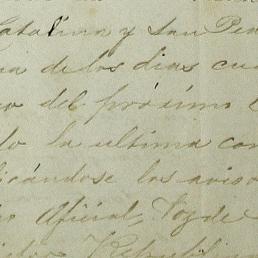 Catalina y San Pe
a de los dias cu
o del próximo
do la ultima con
licándose los aviso
io Oficial, Voz de
Republi